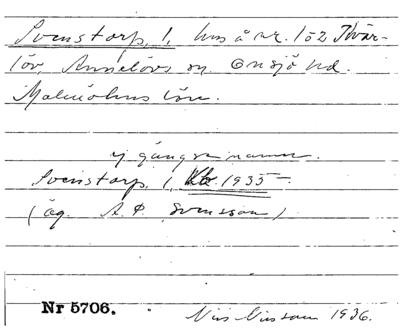 Svenstorp, 1, hus å nr. 1 o 2 Tvär-
löv, Annelövs sn. Onsjö hd.
Malmöhus län.
ej gängse namn.
Svenstorp, 1, Kb. 1935
(äg. A. P. Svensson)
Nr 5706.
Nils Nilsson 1936.